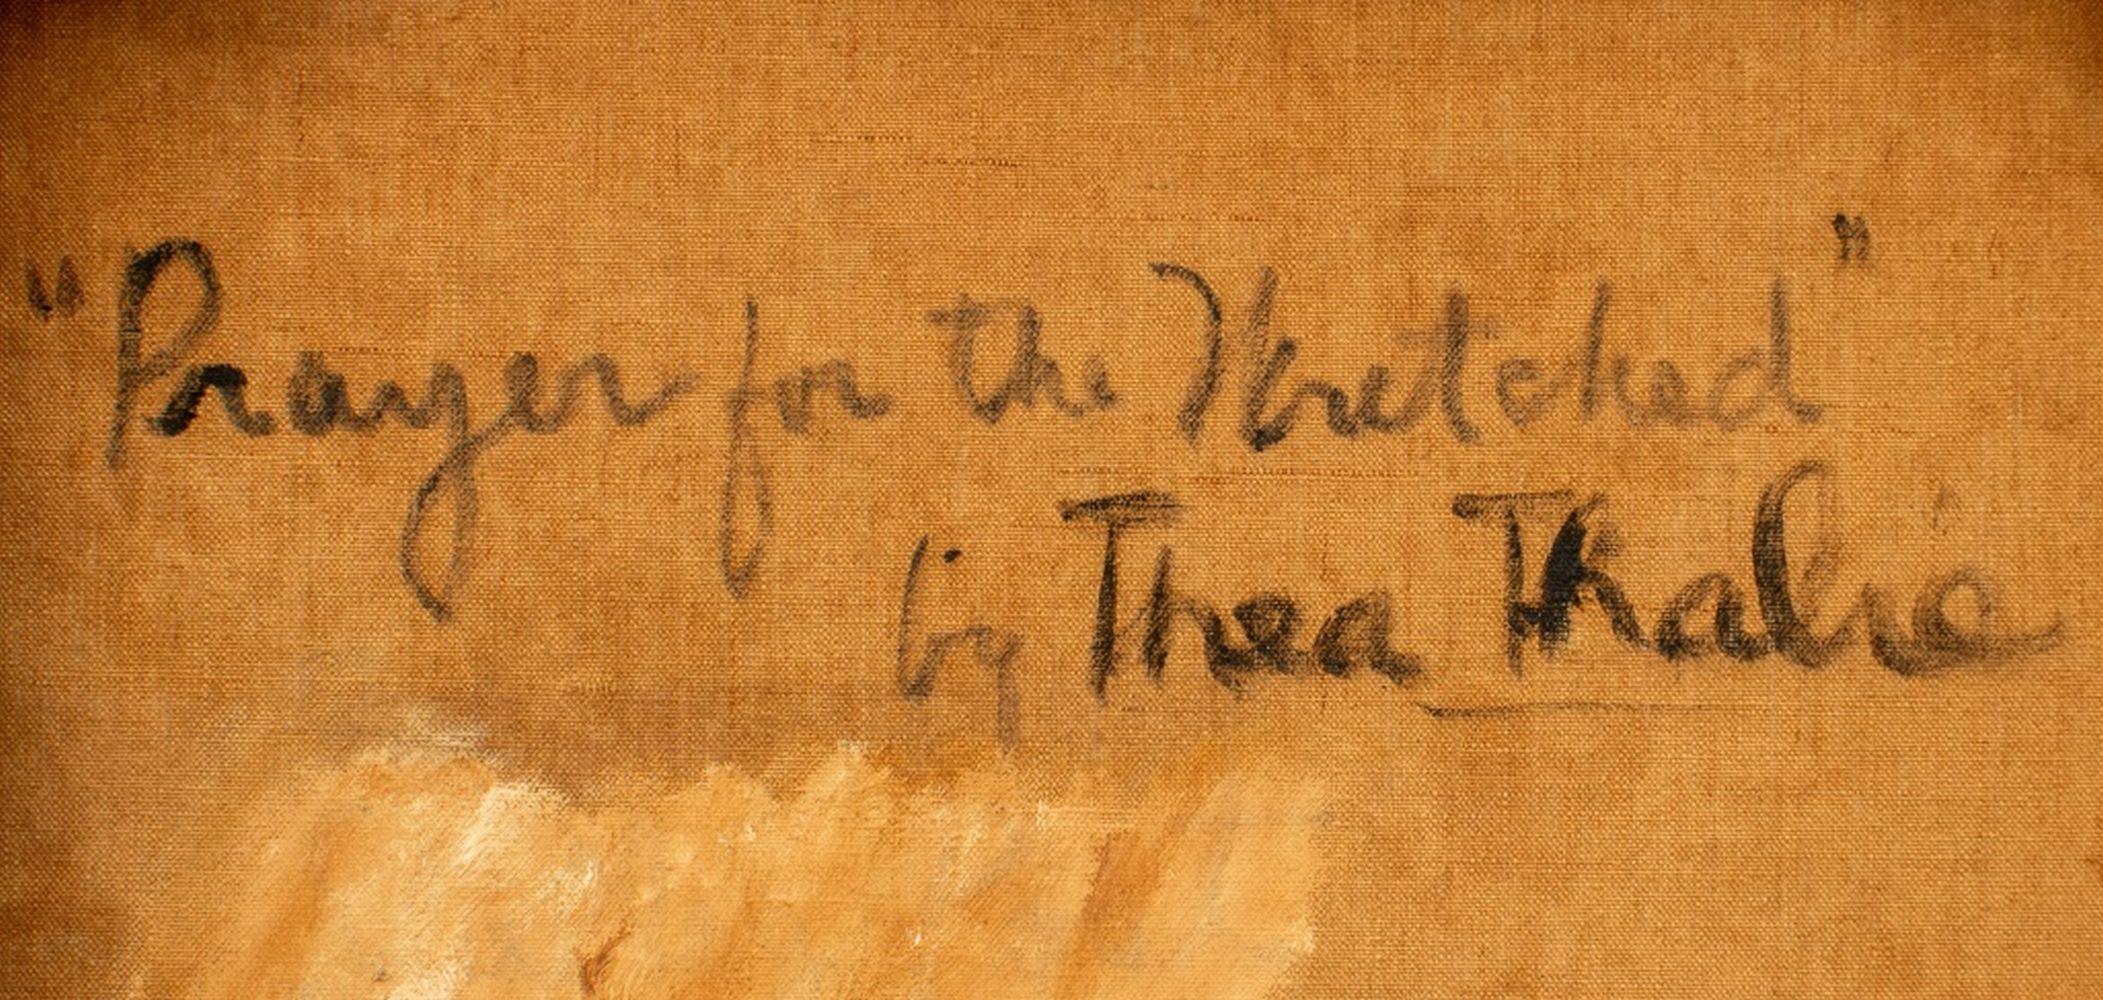 "Prayer for the Wretched"
by Thea Thalie